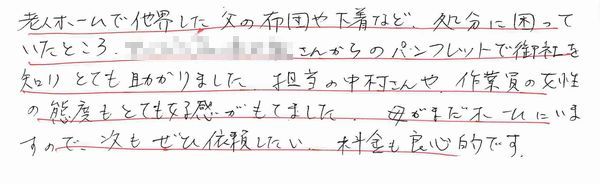 老人ホームで他界した父の布団や下着など、処分に困って
いたところ、さんからのパンフレットで御社を
知りとても助かりました。担当の中村さんや、作業員の女性
の態度もとても好感がもてました。母がまだホームにいま
すので、次もぜひ依頼したい。料金も良心的です。